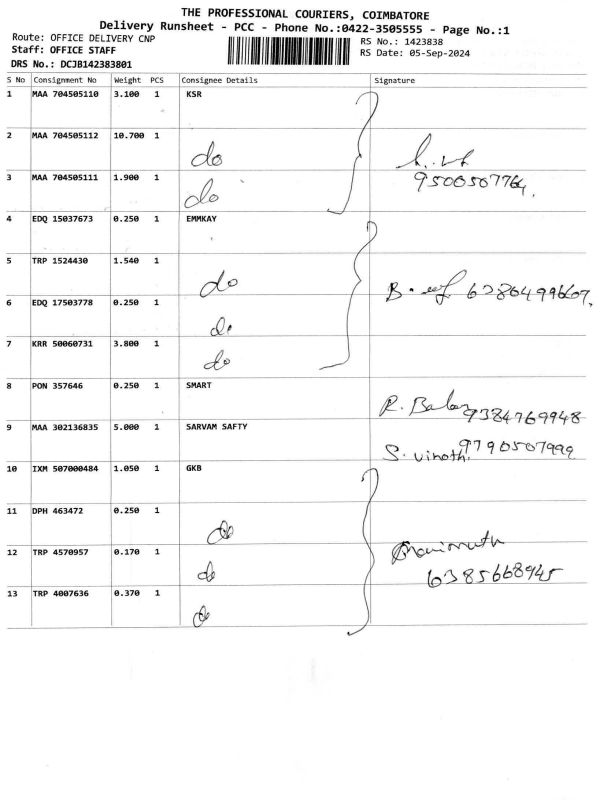 THE PROFESSIONAL COURIERS, COIMBATORE
Delivery Runsheet - PCC - Phone No.:0422-3505555 - Page No.:1
Route: OFFICE DELIVERY CNP RS No.: 1423838
Staff: OFFICE STAFF RS Date: 05-Sep-2024
DRS No.: DCJB142383801
S No Consignment No Weight PCS Consignee Details Signature
1 MAA 704505110 3.100 1 KSR
2 MAA 704505112 10.700 1
do
3 MAA 704505111 1.900 1 9500507764.
do
4 EDQ 15037673 0.250 1 EMMKAY
5 TRP 1524430 1.540 1
do B. 6286499607,
6 EDQ 17503778 0.250 1
do
7 KRR 50060731 3.800 1
do
8 PON 357646 0.250 1 SMART
R. 9384769948
9 MAA 302136835 5.000 1 SARVAM SAFTY
S. vinoth. 9790507999
10 IXM 507000484 1.050 1 GKB
11 DPH 463472 0.250 1
do
12 TRP 4570957 0.170 1
do 6385668945
13 TRP 4007636 0.370 1
do